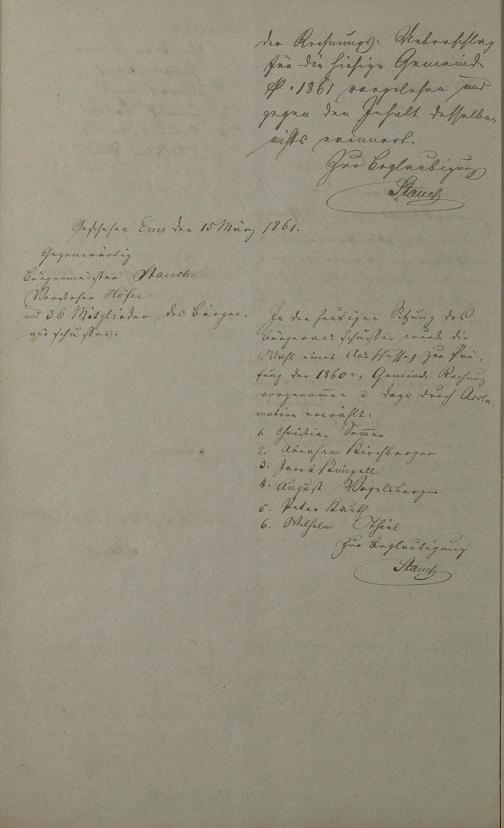 der Rechnungs-Ueberschlag
für die hiesige Gemeinde
pr. 1861 vorgelesen und
gegen den Inhalt desselben
nichts erinnert.
Zur Beglaubigung
Stauch
Geschehen Ems den 15 März 1861.
Gegenwärtig
Bürgermeister Stauch
Vorsteher Höfer
und 36 Mitglieder des Bürger-
ausschusses.
In der heutigen Sitzung des
Bürgerausschusses wurde die
Wahl eines Ausschusses zur Prü-
fung der 1860r Gemeinde Rechnung
vorgenommen u. dazu durch Accla-
mation erwählt:
1. Christian Sommer
2. Abraham Kirchberger
3. Jacob
4. August Vogelsberger
5. Peter
6. Wilhelm Thiel
Zur Beglaubigung
Stauch